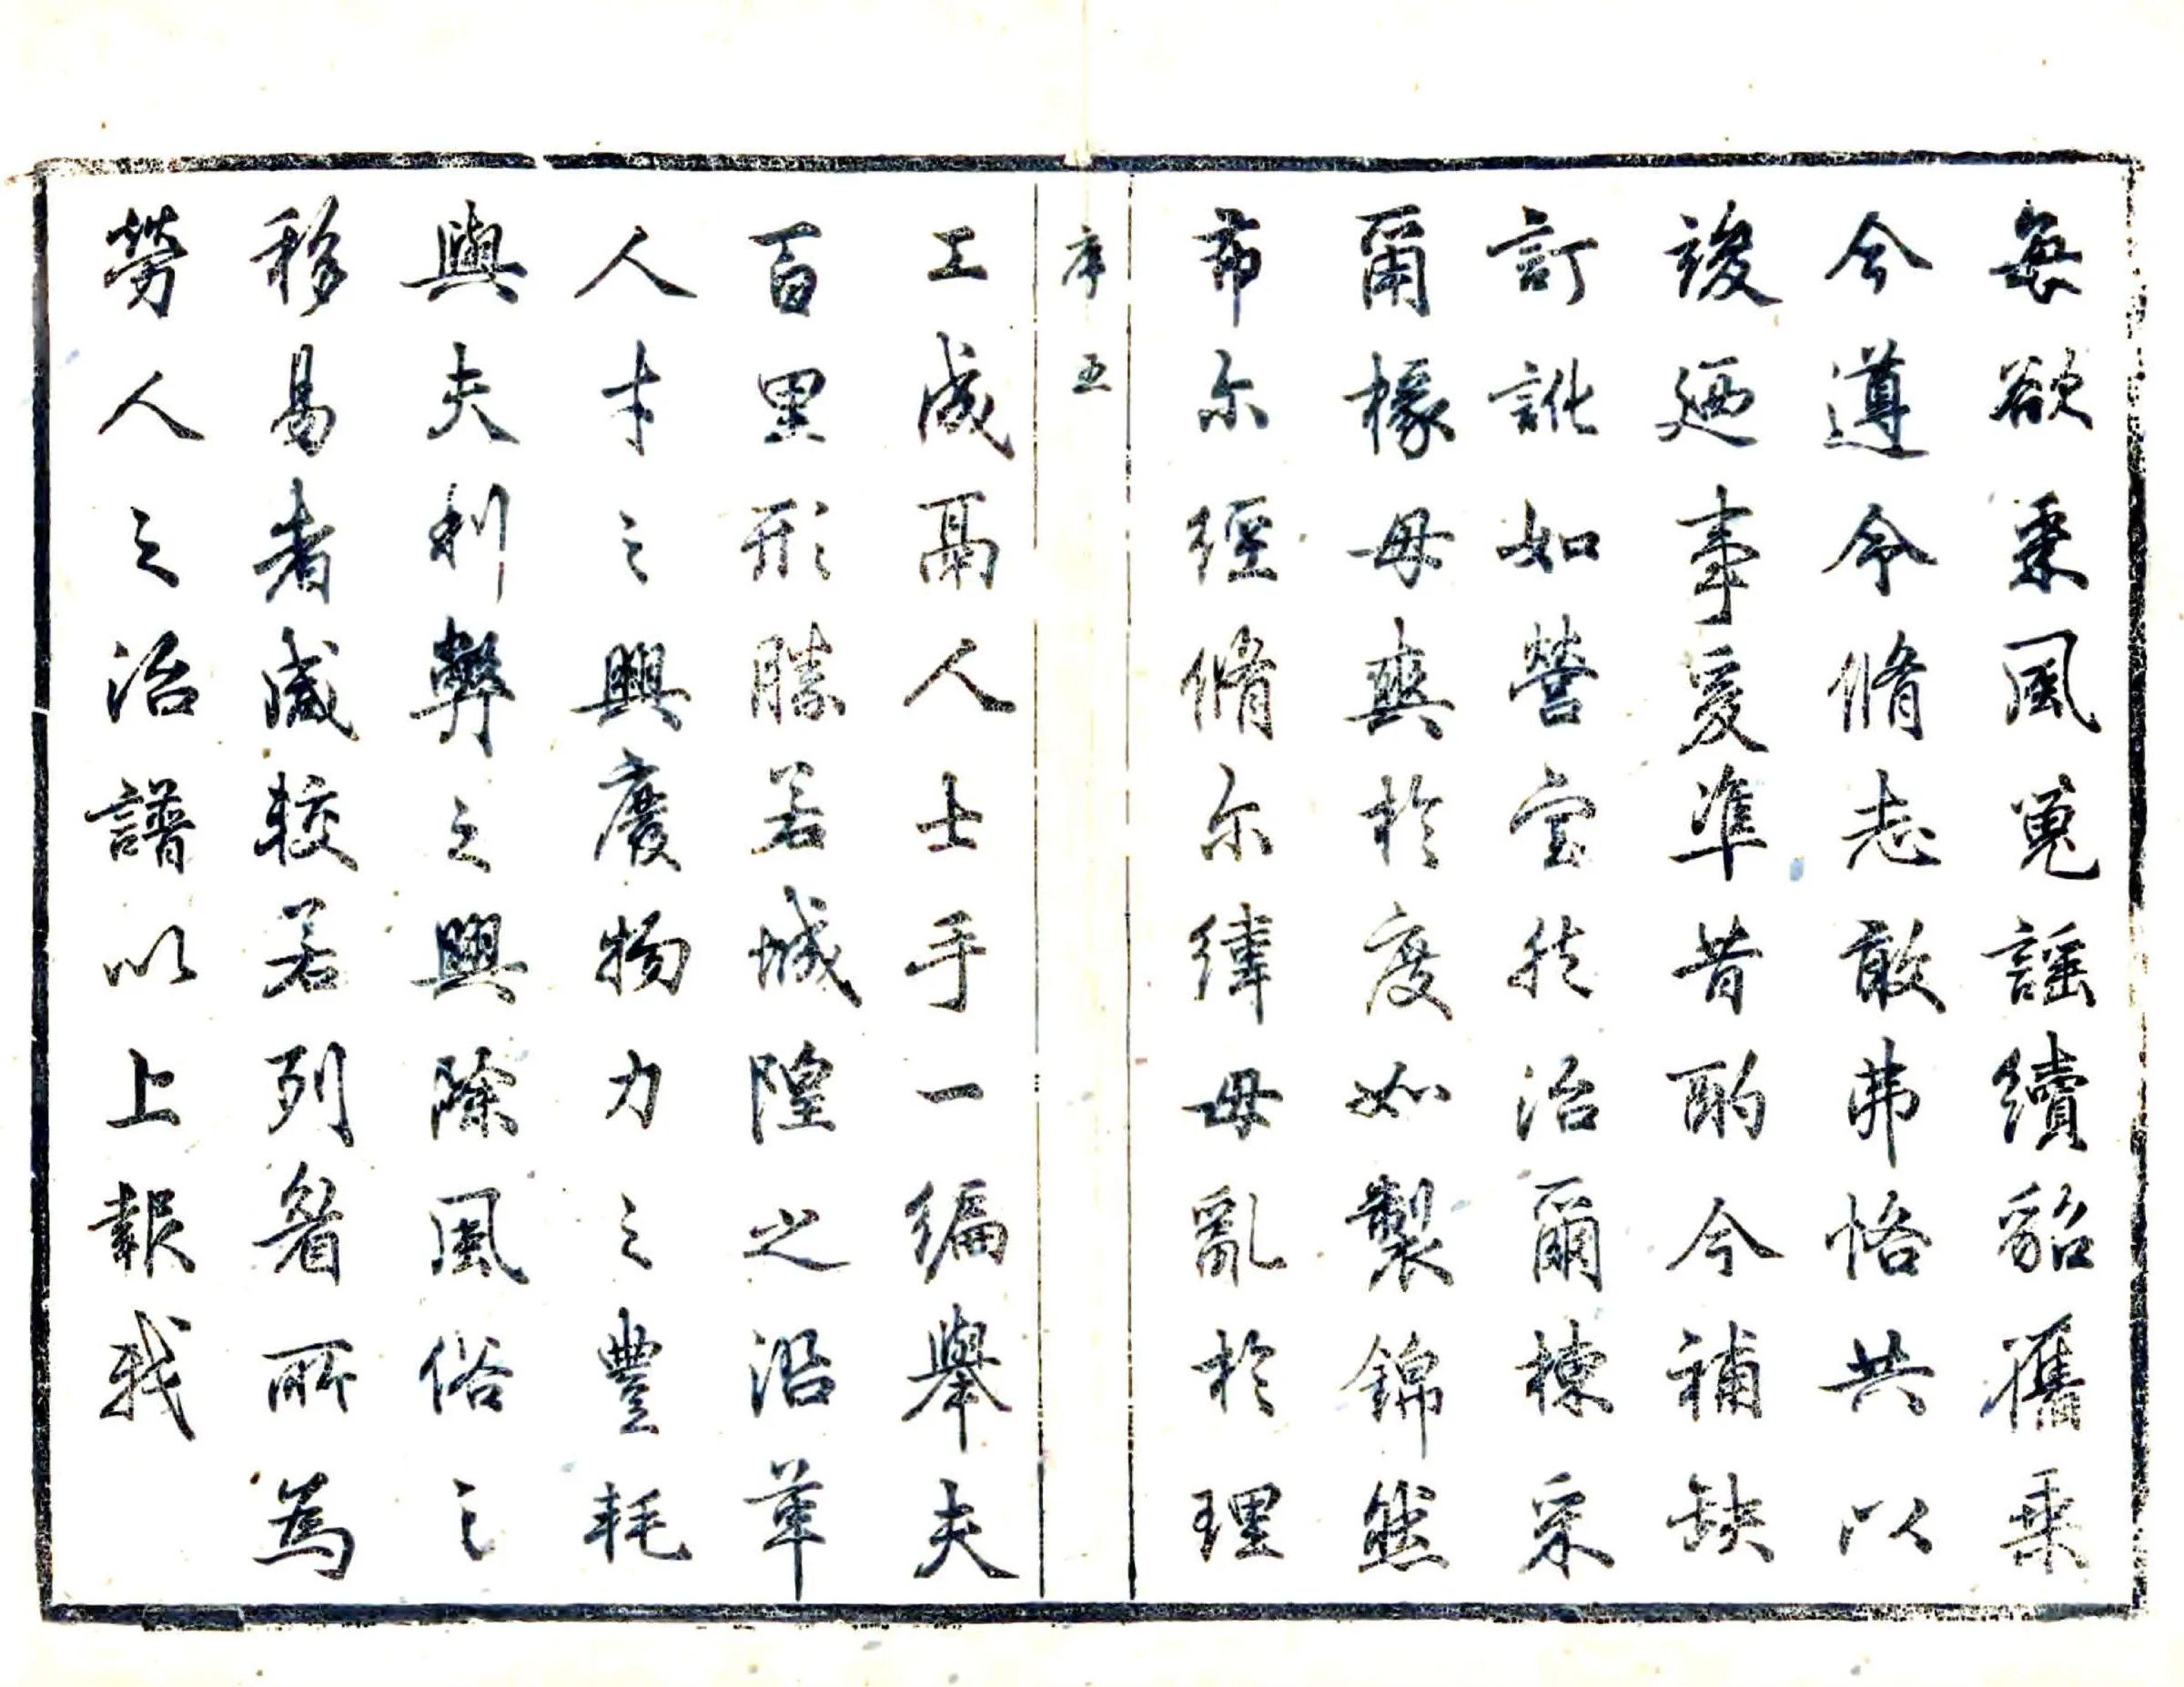 每欲采風蒐謠續貂舊乘
今遵令脩志敢弗恪共以
竣廼事爰準昔酌今補缺
訂訛如營室然治爾棟采
爾椽毋爽於度如製錦然
布尔經脩尔緯毋亂於理
序 五
工成鬲人士手一編舉夫
百里形勝若城隍之沿革
人才之興廢物力之豐耗
與夫利弊之興除風俗之
移易者咸較若列眉所為
勞人之治譜以上報我